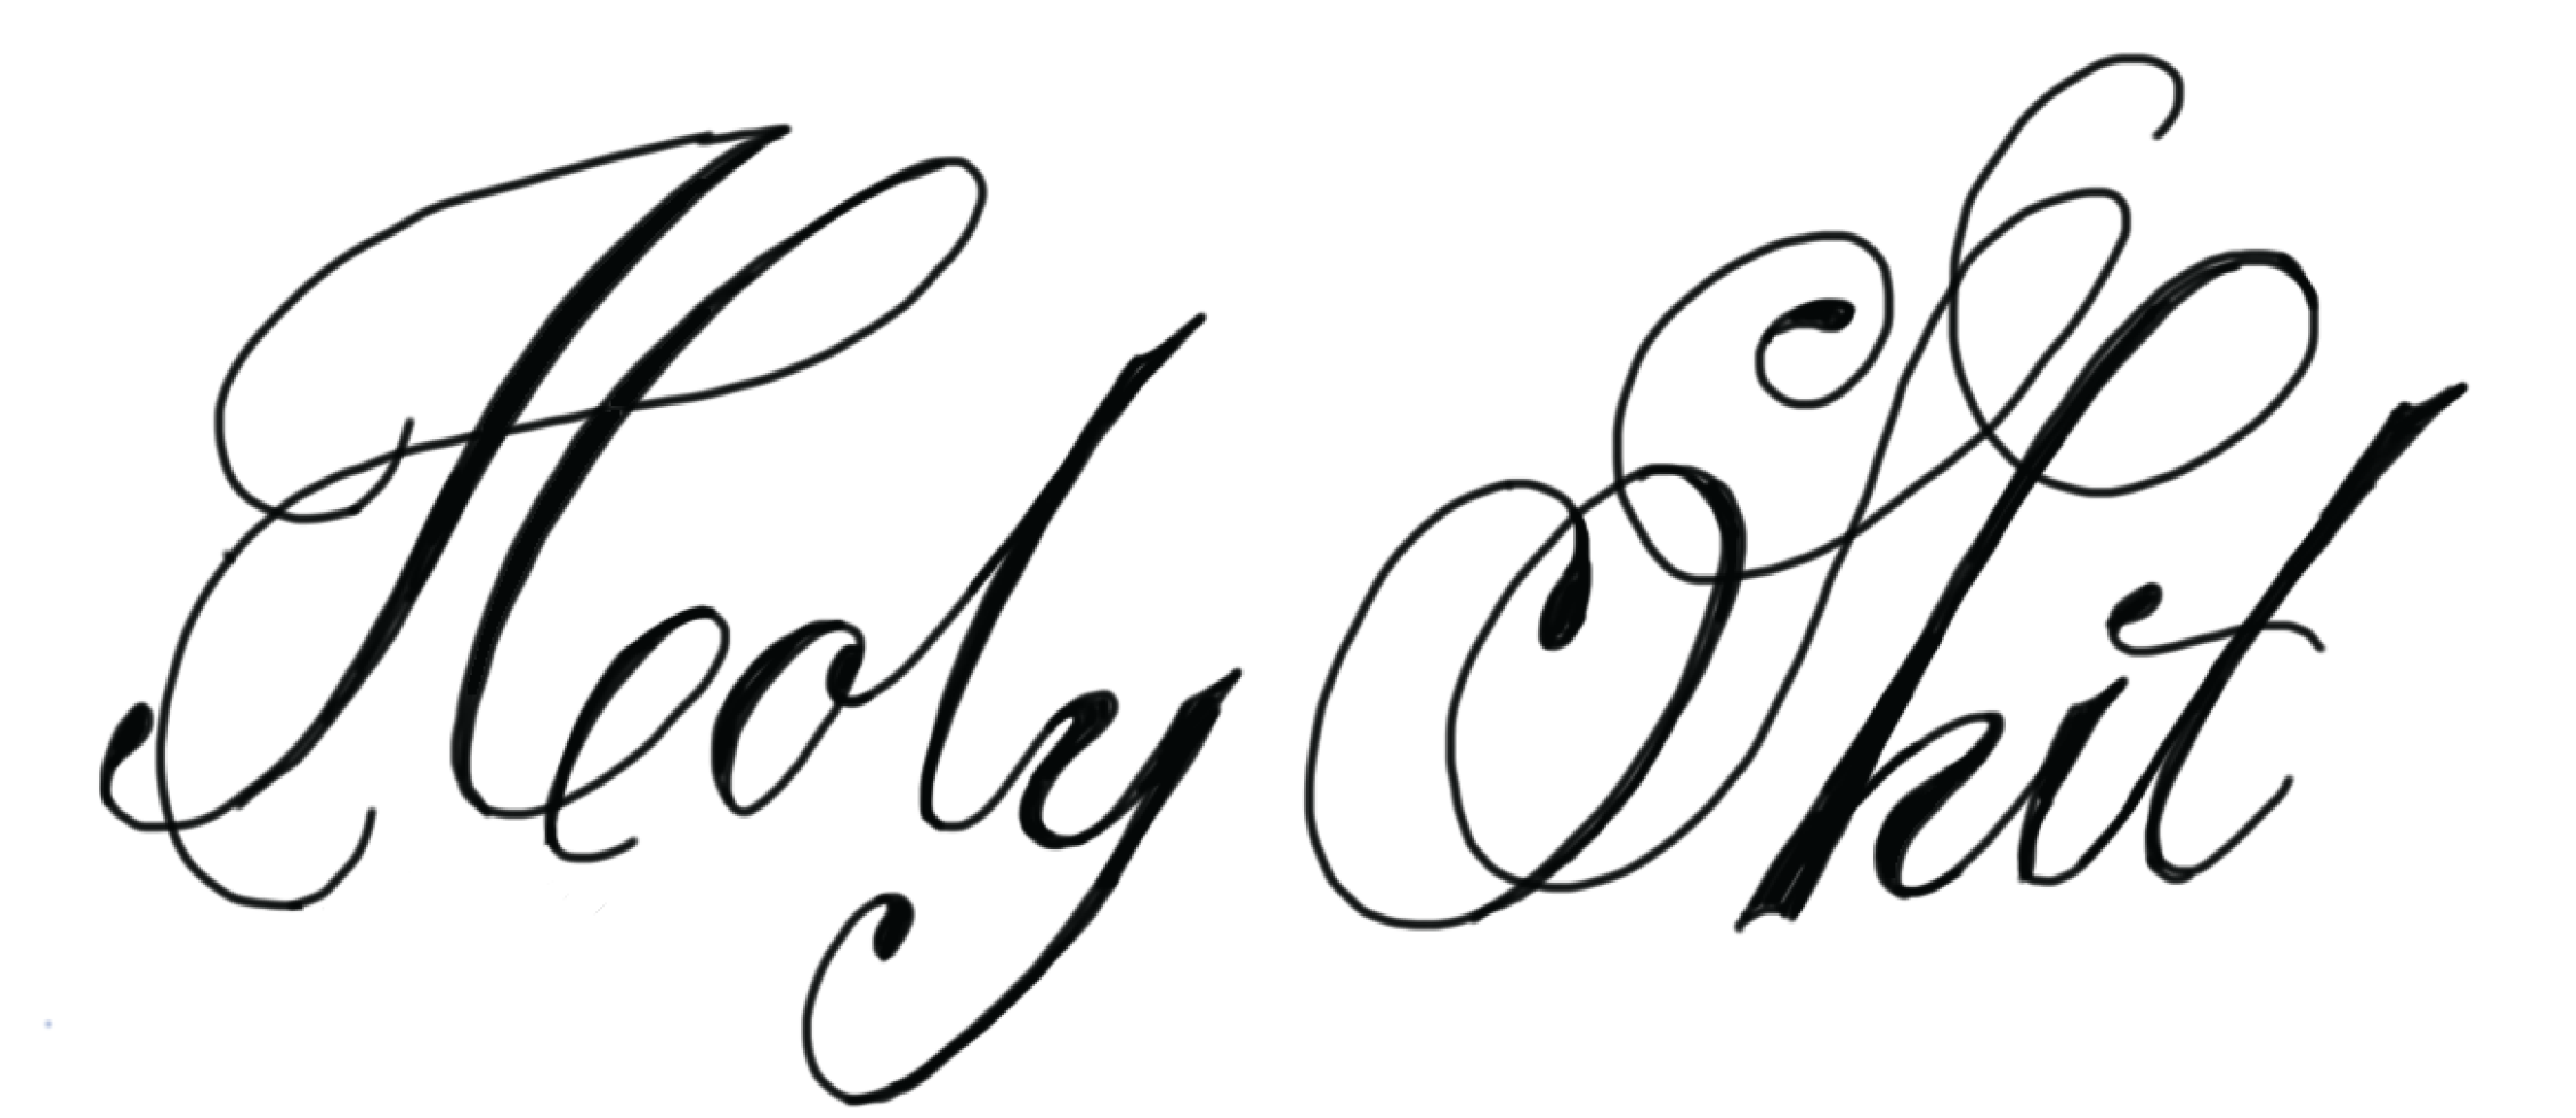 Holy Shit